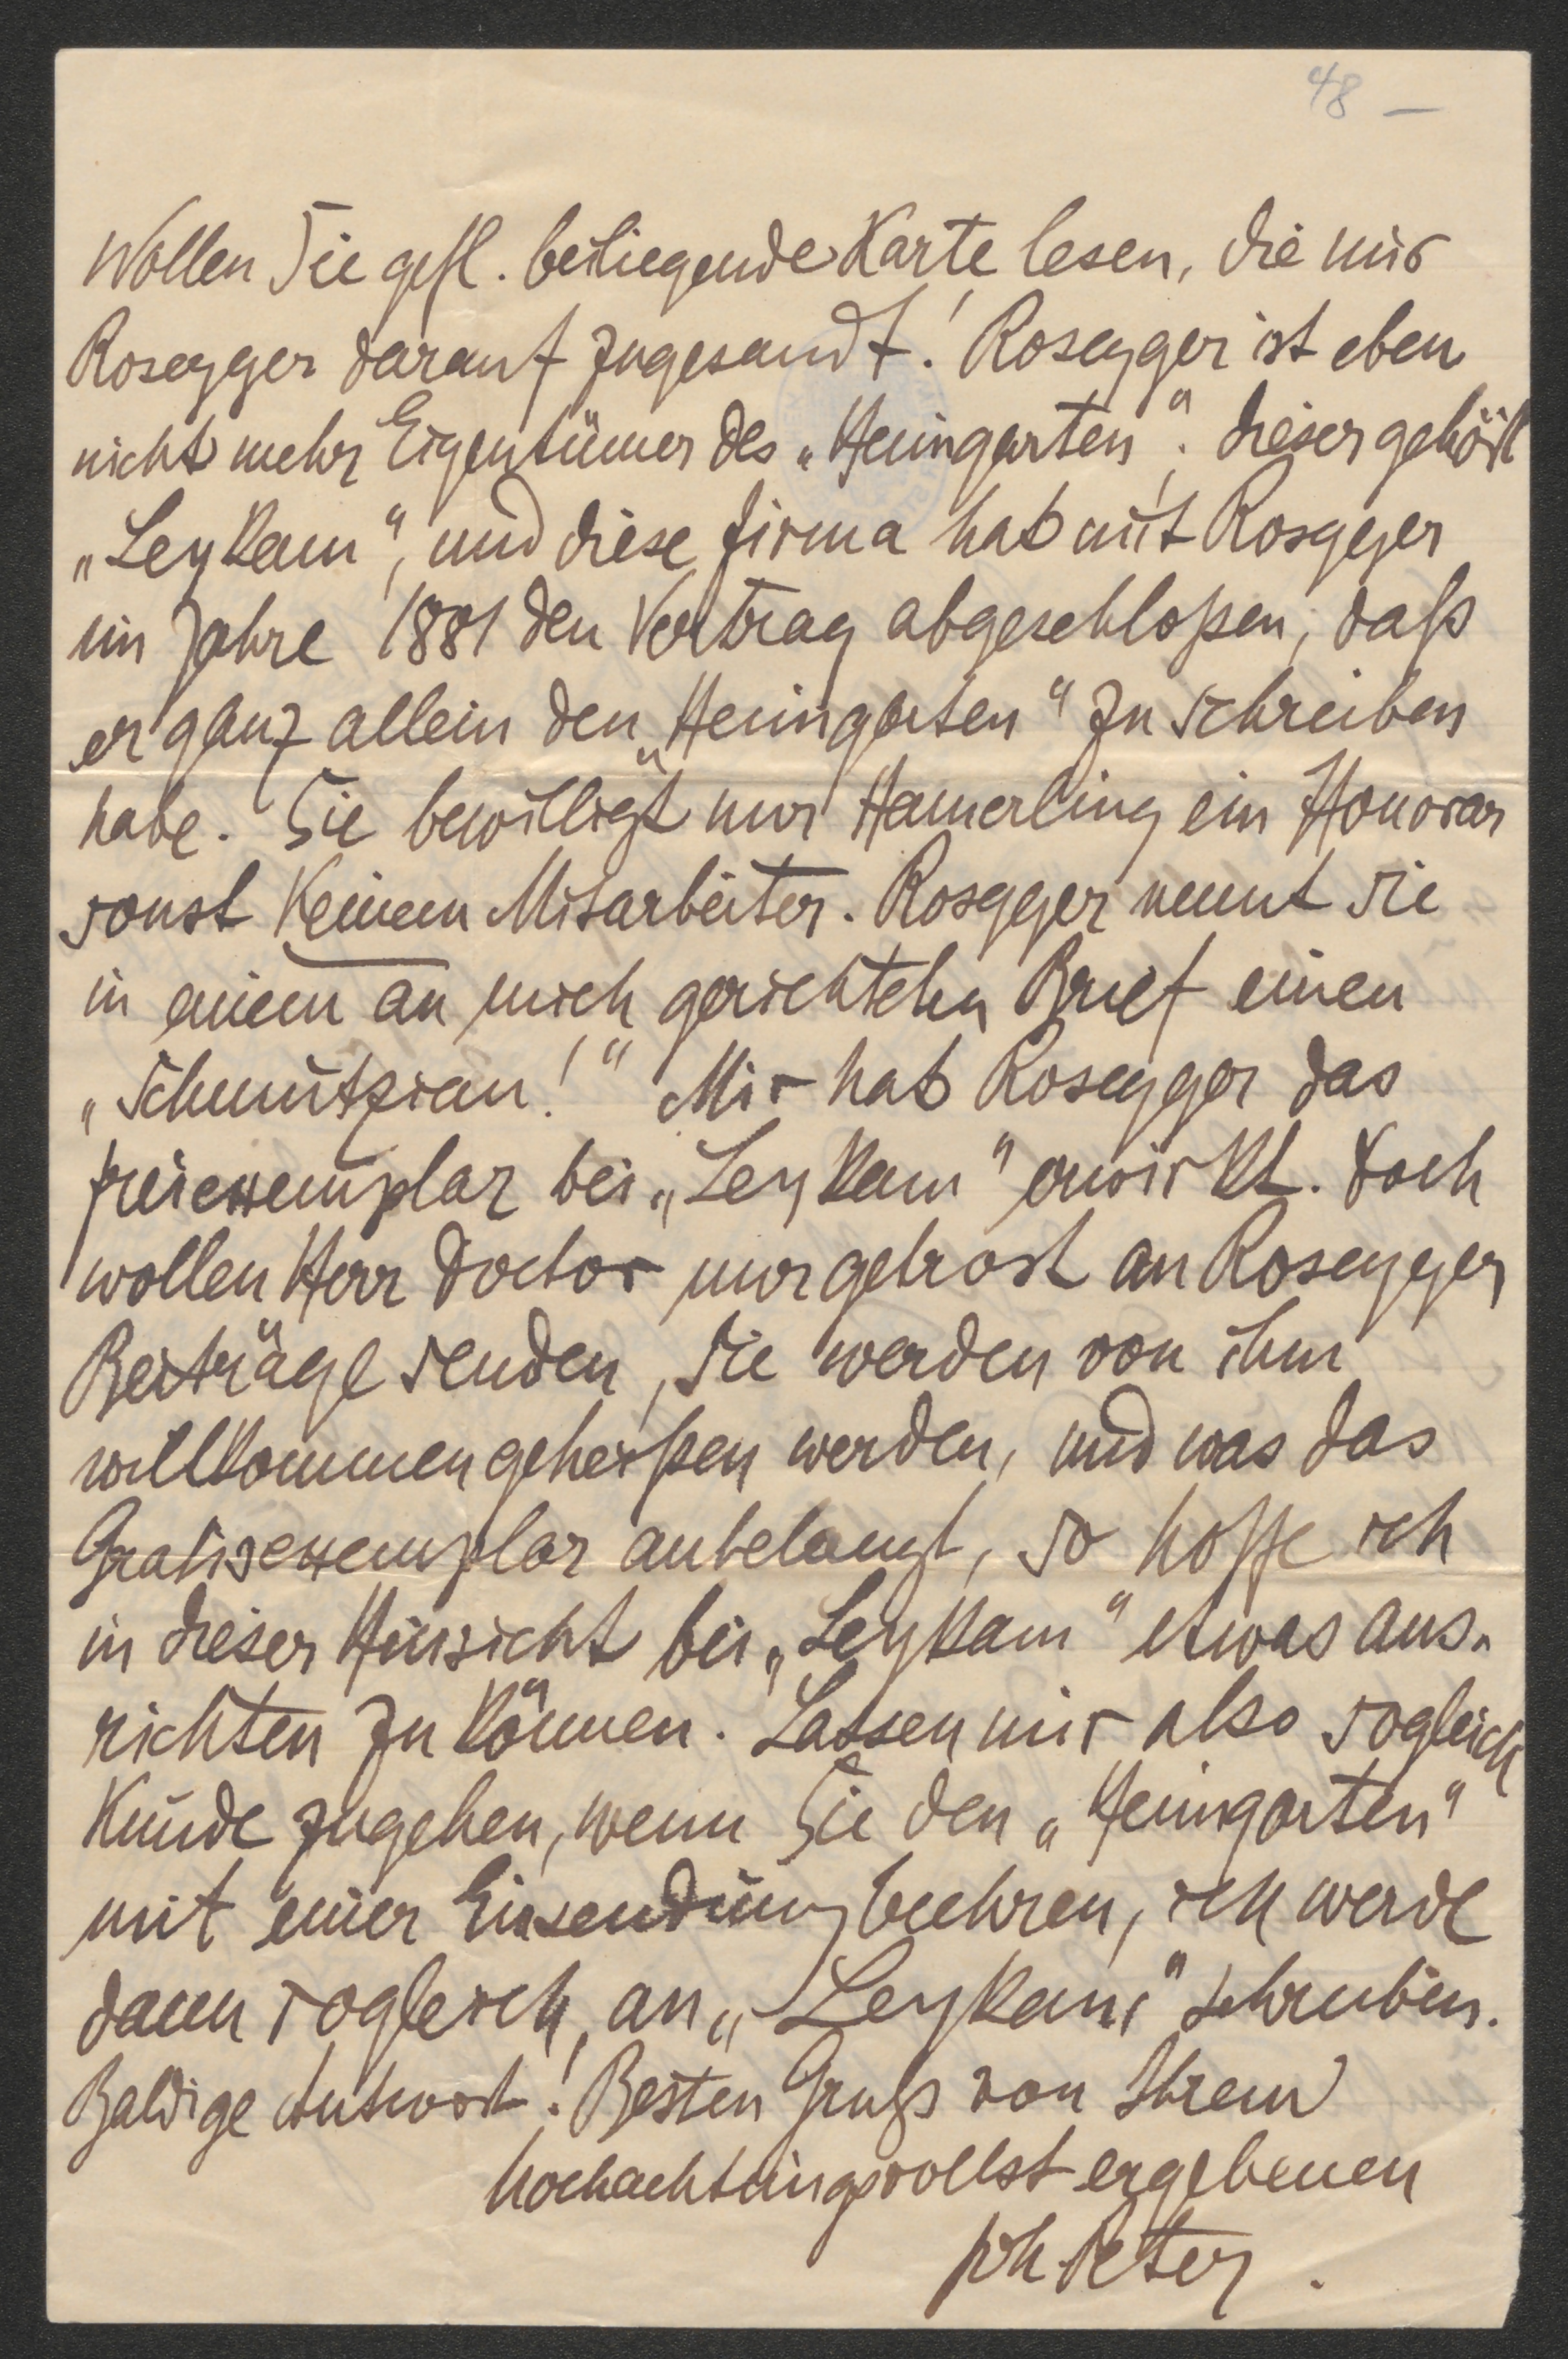 48 –
Wollen Sie gefl. beiliegende Karte lesen, die mir
Rosegger darauf zugesandt! Rosegger ist eben
nicht mehr Eigentümer des „Heimgarten“; dieser gehört
„Leykam“, und diese Firma hat mit Rosegger
im Jahre 1881 den Vertrag abgeschloßen, daß
er ganz allein den „Heimgarten“ zu schreiben
habe. Sie bewilligt nur Hamerling ein Honorar
sonst keinem Mitarbeiter. Rosegger nennt sie
in einem an mich gerichteten Brief einen
„Schmutzian!“ Mir hat Rosegger das
Freiexemplar bei „Leykam“ erwirkt. Doch
wollen Herr Doctor nur getrost an Rosegger
Beiträge senden, sie werden von ihm
willkommen geheißen werden, und was das
Gratisexemplar anbelangt, so hoffe ich
in dieser Hinsicht bei „Leykam“ etwas aus-
richten zu können. Lassen mir also sogleich
Kunde zugehen, wenn Sie den „Heimgarten“
mit einer Einsendung beehren, ich werde
dann sogleich an „Leykam“ schreiben.
Baldige Antwort! Besten Gruß von Ihrem
hochachtungsvollst ergebenen
Joh. Peter.